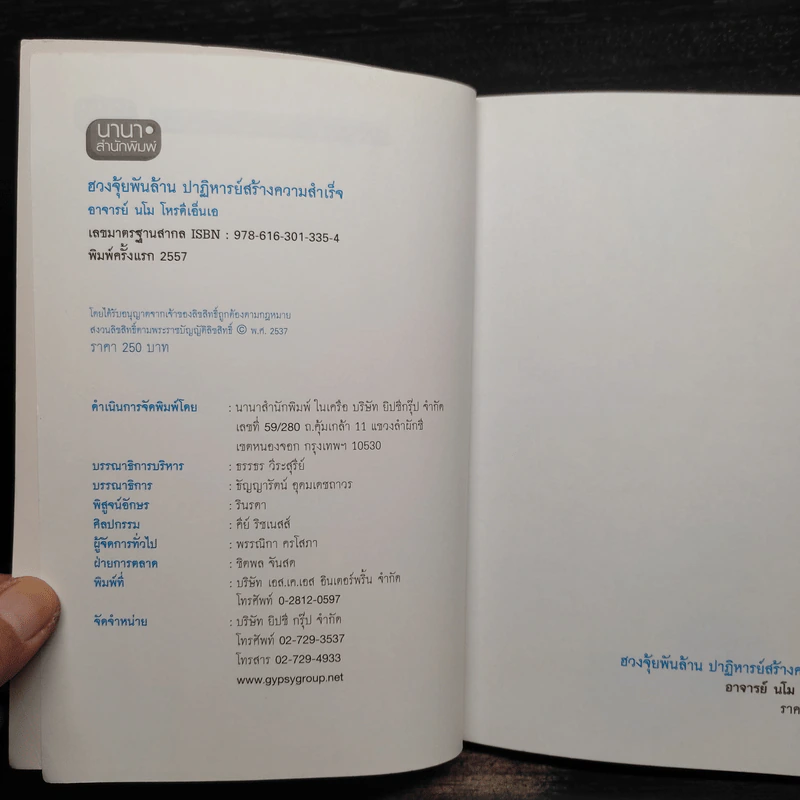 นานา
สำนักพิมพ์
ฮวงจุ้ยพันล้าน ปาฏิหารย์สร้างความสำเร็จ
อาจารย์ นโม โหรดีเอ็นเอ
เลขมาตรฐานสากล ISBN : 978-616-301-335-4
พิมพ์ครั้งแรก 2557
โดยได้รับอนุญาตจากเจ้าของลิขสิทธิ์ถูกต้องตามกฎหมาย
สงวนลิขสิทธิ์ตามพระราชบัญญัติลิขสิทธิ์ © พ.ศ. 2537
ราคา 250 บาท
ดำเนินการจัดพิมพ์โดย : นานาสำนักพิมพ์ ในเครือ บริษัท ยิปซีกรุ๊ป จำกัด
เลขที่ 59/280 ถ.คุ้มเกล้า 11 แขวงลำผักชี
เขตหนองจอก กรุงเทพฯ 10530
บรรณาธิการบริหาร : ธรรธร วีระสุรีย์
บรรณาธิการ : ธัญญารัตน์ อุดมเดชถาวร
พิสูจน์อักษร : รินรดา
ศิลปกรรม : คีย์ ริชเนสส์
ผู้จัดการทั่วไป : พรรณิกา ครโสภา
ฝ่ายการตลาด : ชิตพล จันสด
พิมพ์ที่ : บริษัท เอส.เค.เอส อินเตอร์พริ้น จำกัด
โทรศัพท์ 0-2812-0597
จัดจำหน่าย : บริษัท ยิปซี กรุ๊ป จำกัด
โทรศัพท์ 02-729-3537
โทรสาร 02-729-4933
www.gypsygroup.net
ฮวงจุ้ยพันล้าน ปาฏิหารย์สร้างค
อาจารย์ นโม
ราค